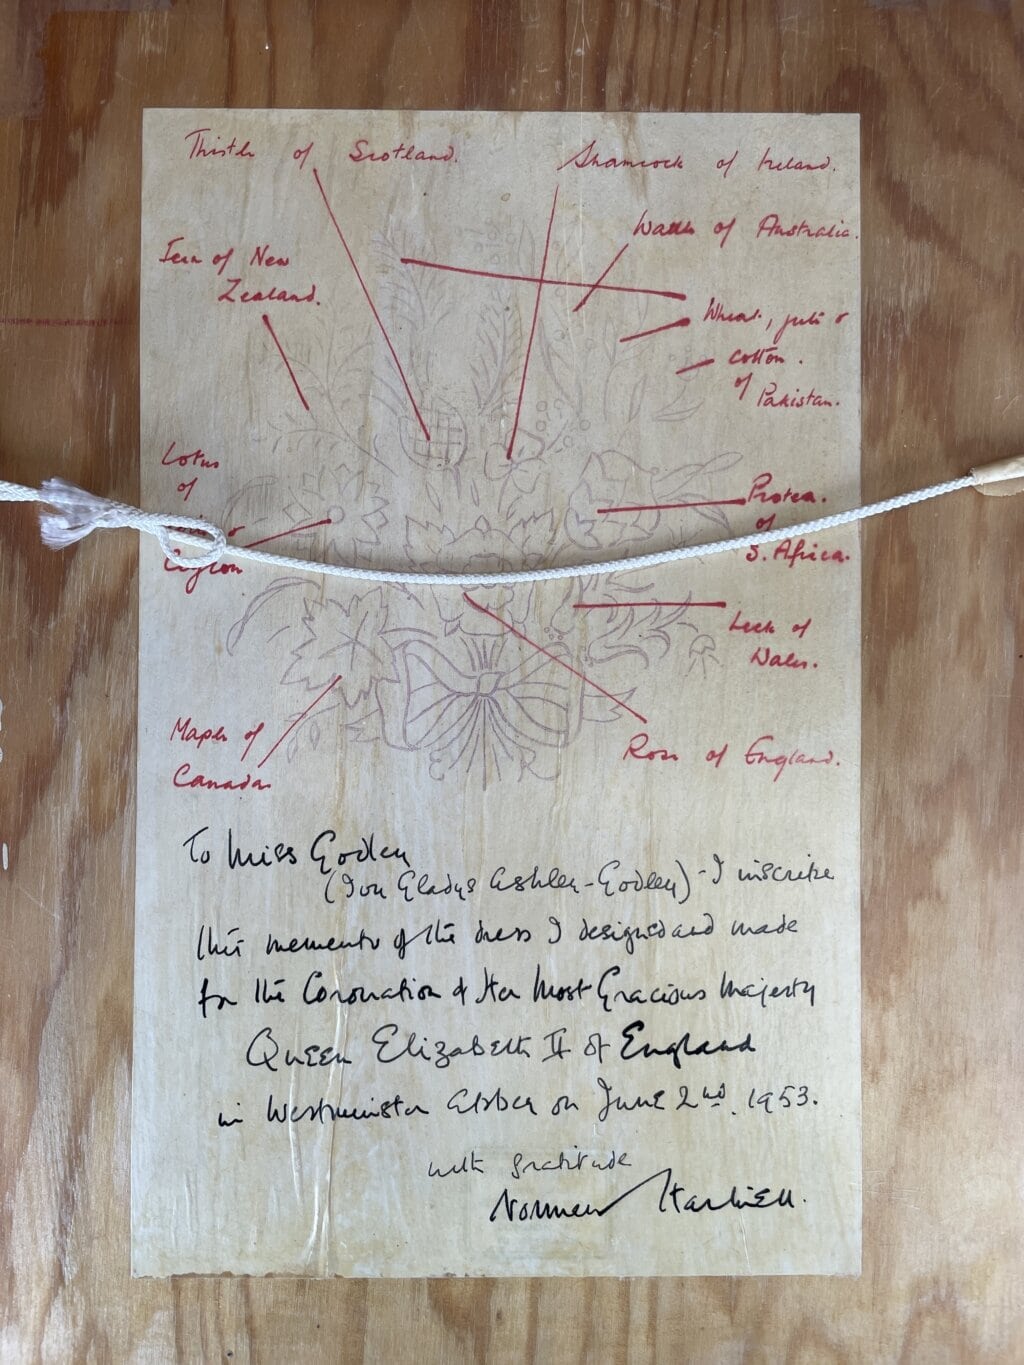 Thistle of Scotland.
Shamrock of Ireland.
Wattle of Australia.
Fern of New
Zealand.
Wheat, jute &
cotton.
of
Pakistan.
Lotus
of
&
Ceylon
Protea.
of
S. Africa.
Leek of
Wales.
Maple of
Canada
Rose of England.
To Miss Godley
(Ion Gladys Ashley-Godley) - I inscribe
this memento of the dress I designed and made
for the Coronation of Her Most Gracious Majesty
Queen Elizabeth II of England
in Westminster Abbey on June 2nd. 1953.
with gratitude
Norman Hartnell.